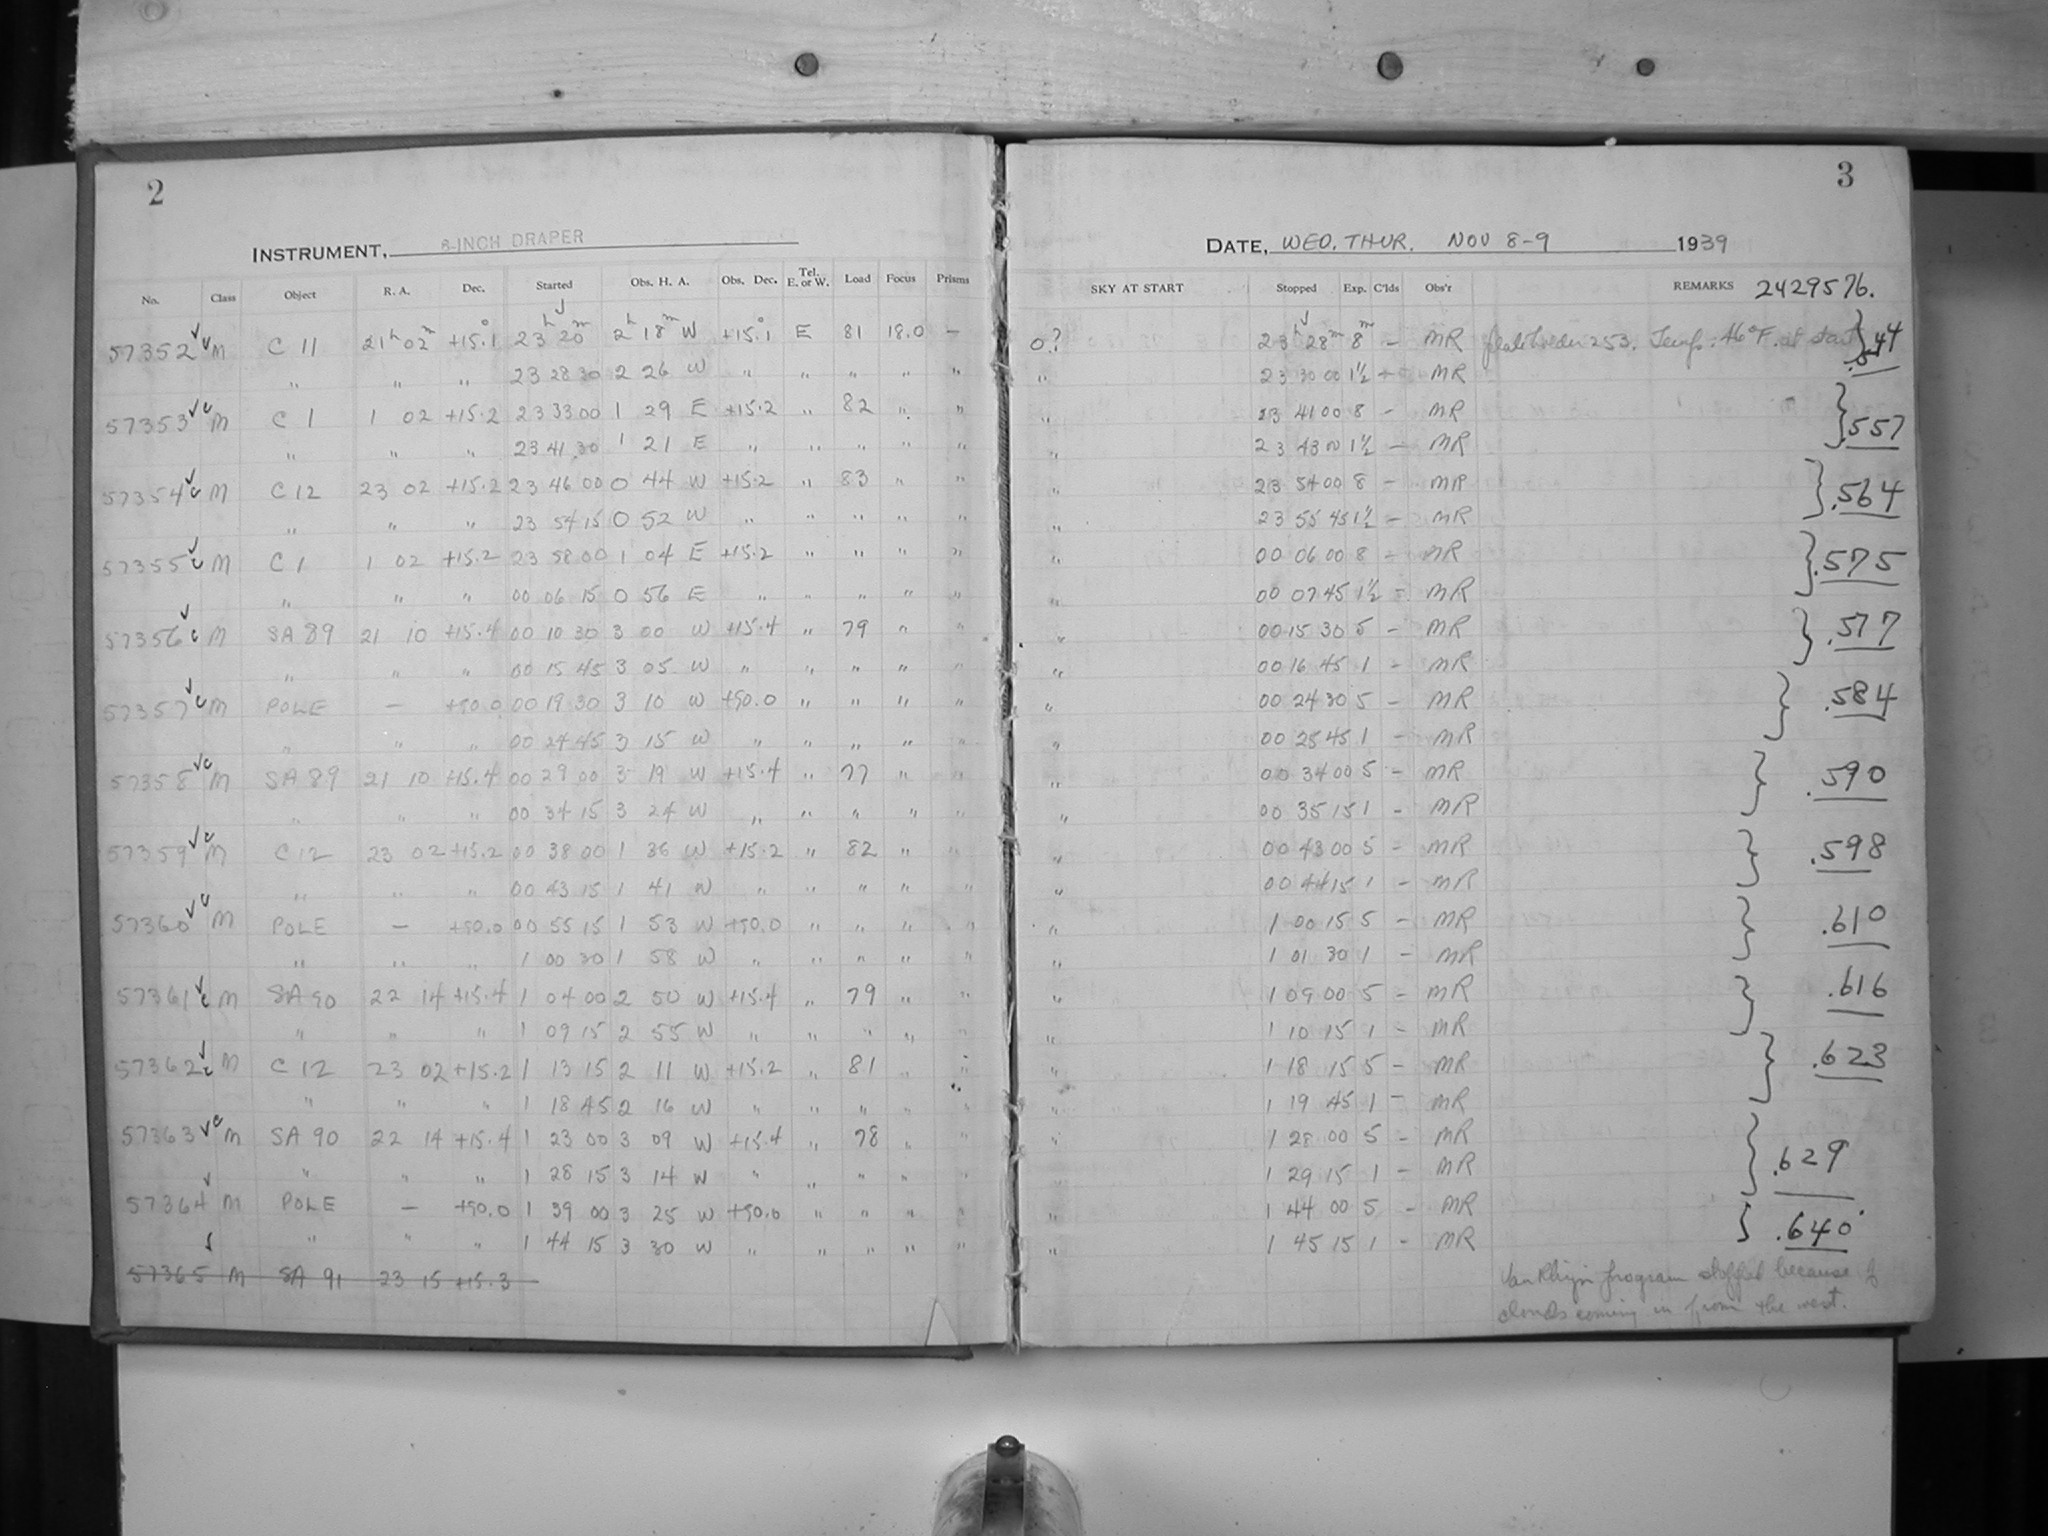 2
INSTRUMENT, 8-INCH DRAPER
No. Class Object R. A. Dec. Started Obs. H. A. Obs. Dec. Tel. E. or W. Load Focus Prisms
57352 ✓c M C 11 21h 02m +15.°1 23h 20m 2h 18m W +15.°1 E 81 18.0 —
" " " 23 28 30 2 26 W " " " " "
57353 ✓c M C 1 1 02 +15.2 23 33 00 1 29 E +15.2 " 82 " "
" " " 23 41 30 1 21 E " " " " "
57354 ✓c M C 12 23 02 +15.2 23 46 00 0 44 W +15.2 " 83 " "
" " " 23 54 15 0 52 W " " " " "
57355 ✓c M C 1 1 02 +15.2 23 58 00 1 04 E +15.2 " " " "
" " " 00 06 15 0 56 E " " " " "
57356 ✓c M SA 89 21 10 +15.4 00 10 30 3 00 W +15.4 " 79 " "
" " " 00 15 45 3 05 W " " " " "
57357 ✓c M POLE — +90.0 00 19 30 3 10 W +90.0 " " " "
" " " 00 24 45 3 15 W " " " " "
57358 ✓c M SA 89 21 10 +15.4 00 29 00 3 19 W +15.4 " 77 " "
" " " 00 34 15 3 24 W " " " " "
57359 ✓c M C 12 23 02 +15.2 00 38 00 1 36 W +15.2 " 82 "
" " " 00 43 15 1 41 W " " " " "
57360 ✓c M POLE — +90.0 00 55 15 1 53 W +90.0 " " " "
" " " 1 00 30 1 58 W " " " " "
57361 ✓c M SA 90 22 14 +15.4 1 04 00 2 50 W +15.4 " 79 " "
" " " 1 09 15 2 55 W " " " " "
57362 ✓c M C 12 23 02 +15.2 1 13 15 2 11 W +15.2 " 81 " "
" " " 1 18 45 2 16 W " " " " "
57363 ✓c M SA 90 22 14 +15.4 1 23 00 3 09 W +15.4 " 78 " "
" " " 1 28 15 3 14 W " " " " "
57364 ✓ M POLE — +90.0 1 39 00 3 25 W +90.0 " " " "
✓ " " " 1 44 15 3 30 W " " " " "
57365 M SA 91 23 15 +15.3
3
DATE, WED. THUR. NOV 8-9 1939
SKY AT START Stopped Exp. C'lds Obs'r REMARKS 2429576.
0? 23h 28m 8m – MR 253. Temp. 46°F. at start
" 23 30 00 1½ – MR
" 23 41 00 8 – MR } .557
" 23 43 00 1½ – MR
" 23 54 00 8 – MR } .564
" 23 55 45 1½ – MR
" 00 06 00 8 – MR } .575
" 00 07 45 1½ – MR
" 00 15 30 5 – MR } .577
" 00 16 45 1 – MR
" 00 24 30 5 – MR } .584
" 00 25 45 1 – MR
" 00 34 00 5 – MR } .590
" 00 35 15 1 – MR
" 00 43 00 5 – MR } .598
" 00 44 15 1 – MR
" 1 00 15 5 – MR } .610
" 1 01 30 1 – MR
" 1 09 00 5 – MR } .616
" 1 10 15 1 – MR
" 1 18 15 5 – MR } .623
" 1 19 45 1 – MR
" 1 28 00 5 – MR } .629
" 1 29 15 1 – MR
" 1 44 00 5 – MR } .640
" 1 45 15 1 – MR
Van Rhijn program stopped because of
clouds coming in from the west.